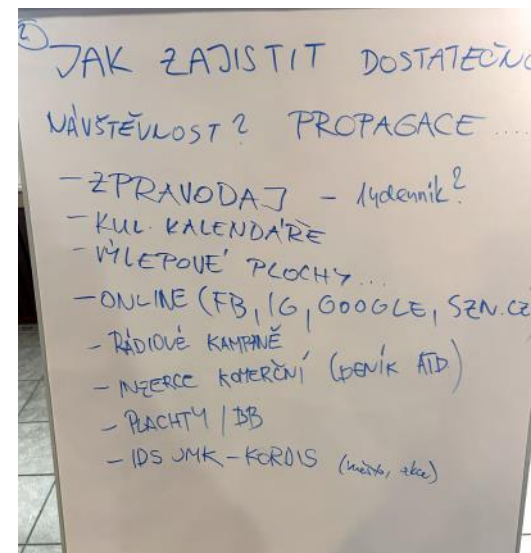 2)
JAK ZAJISTIT DOSTATEČNO
NÁVŠTĚVNOST? PROPAGACE ....
- ZPRAVODAJ - 14denník?
- KUL. KALENDÁŘE
- VÝLEPOVÉ PLOCHY...
- ONLINE (FB, IG, GOOGLE, SZN.CZ
- RÁDIOVÉ KAMPANĚ
- INZERCE KOMERČNÍ (DENÍK ATD.)
- PLACHTY / BB
- IDS JMK - KORDIS (město, akce)